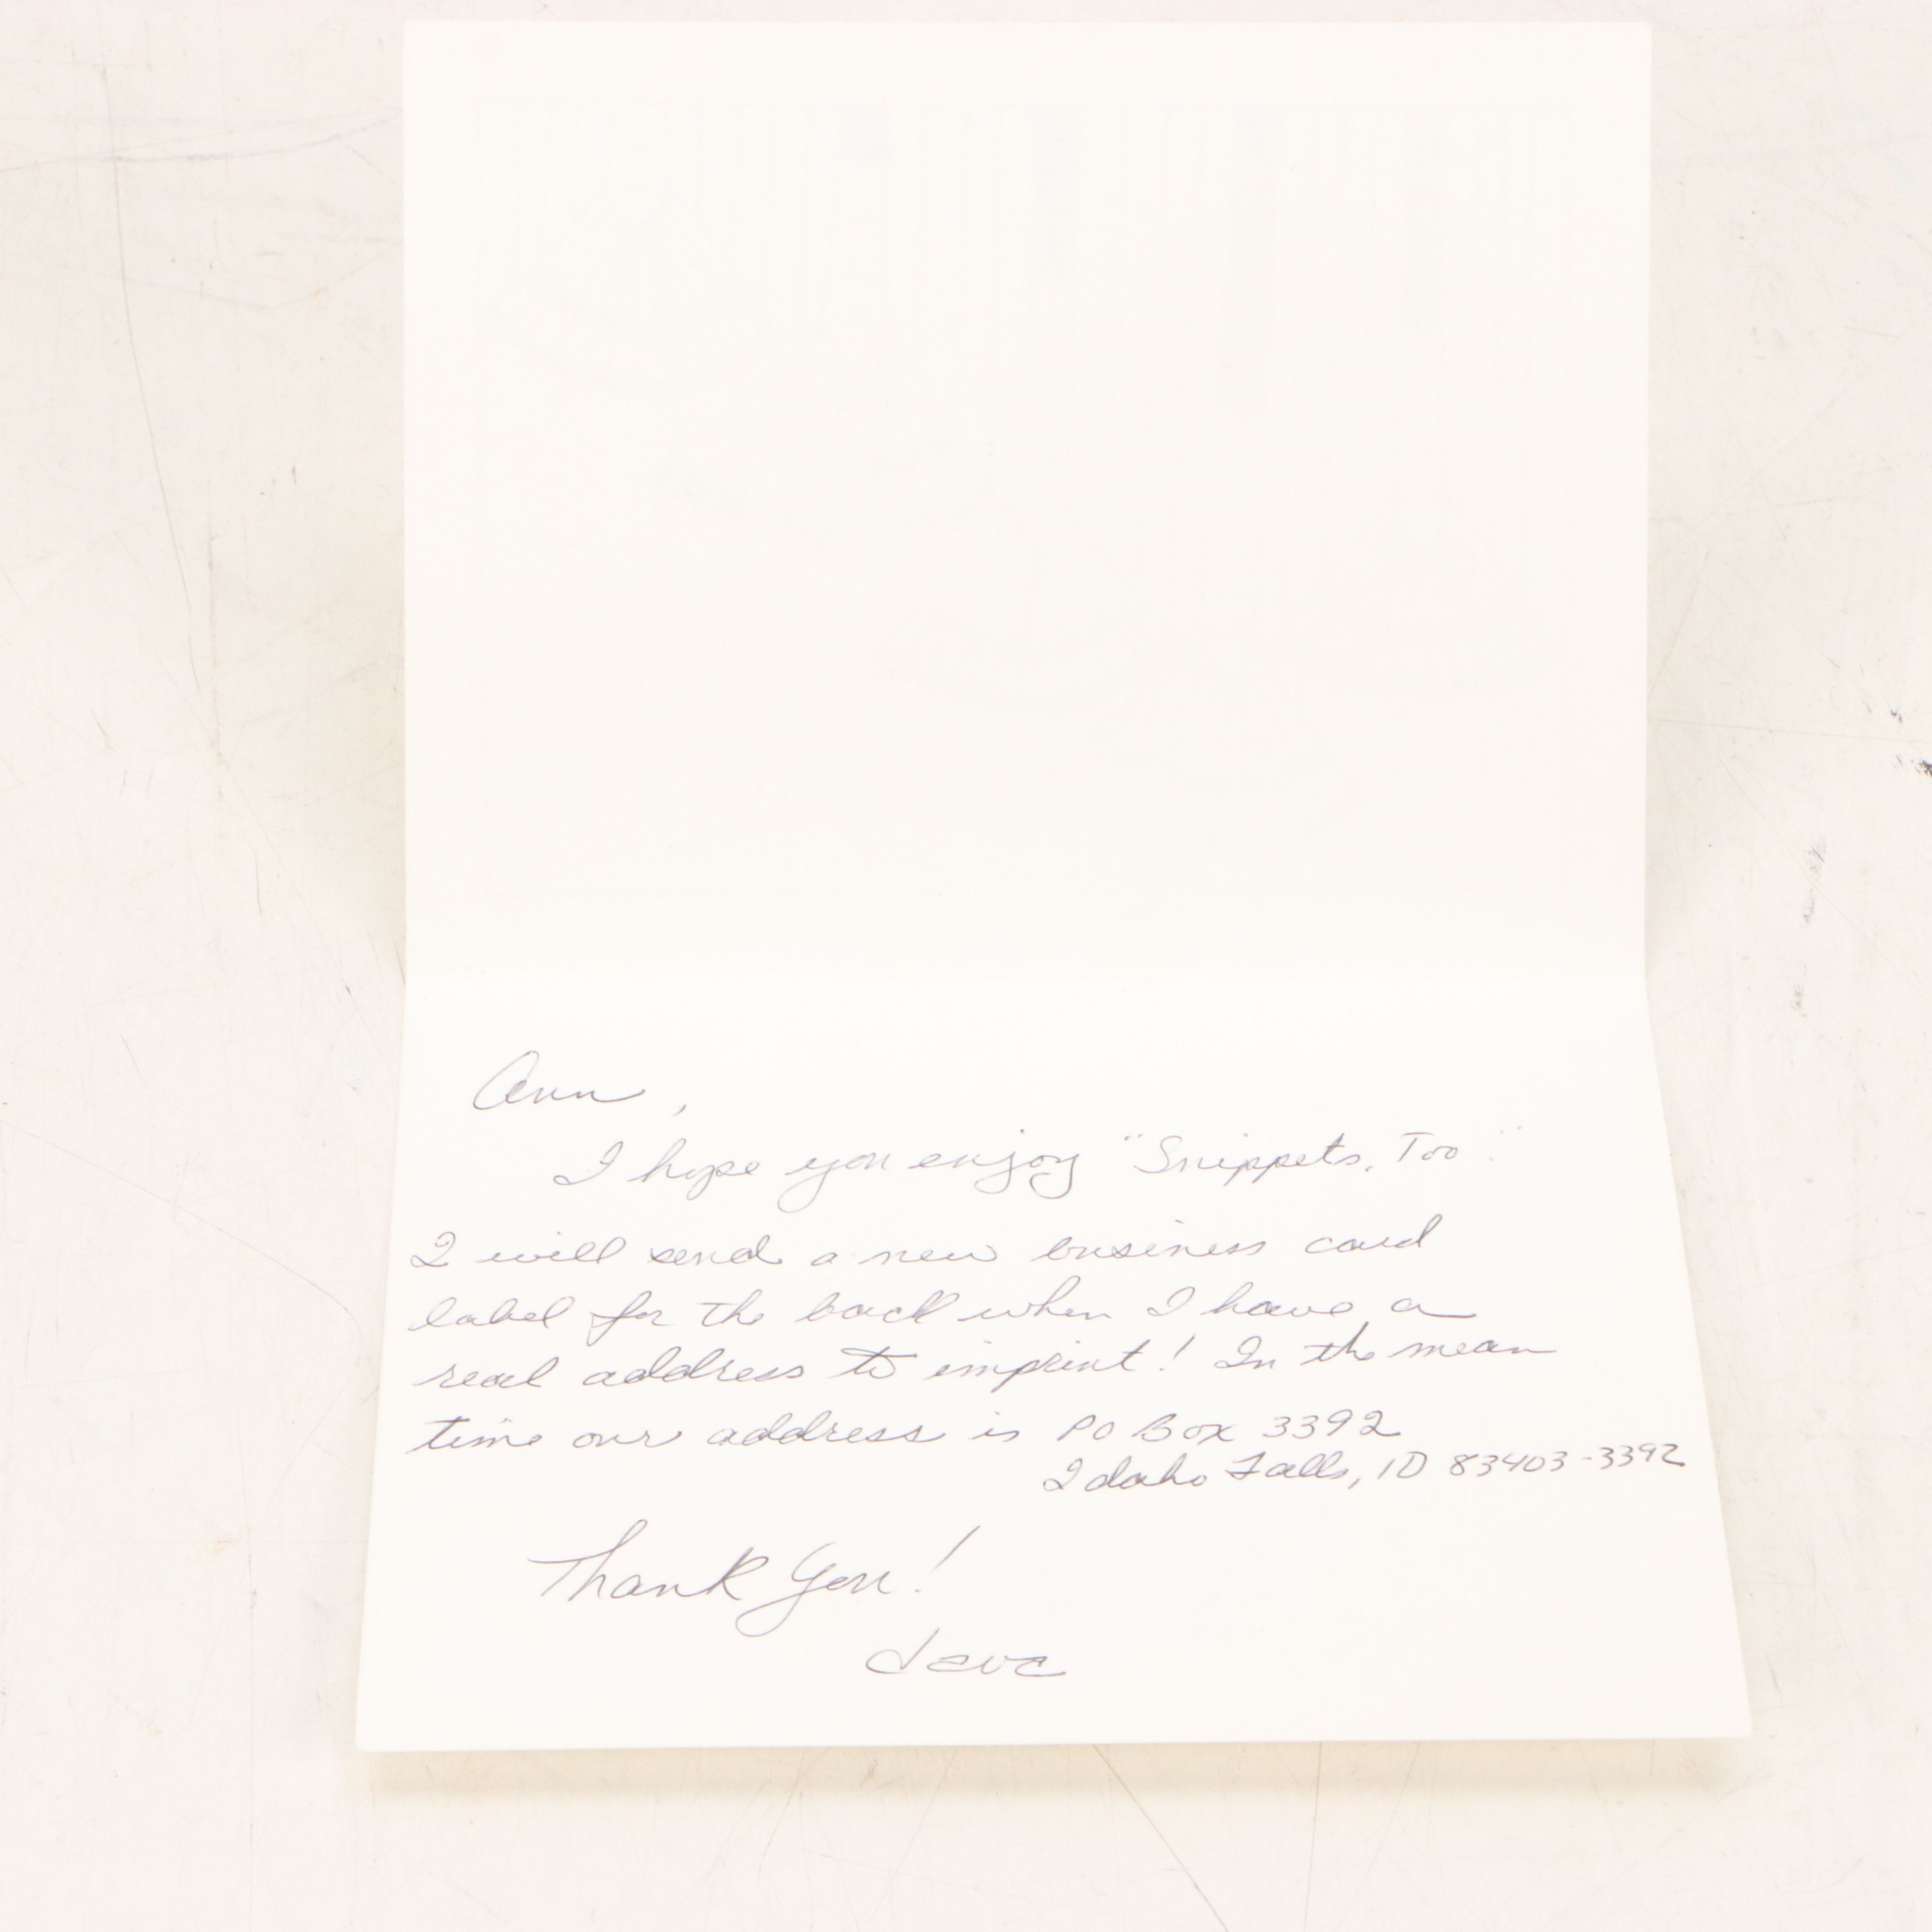 Ann,
I hope you enjoy "Snippets, Too".
I will send a new business card
label for the back when I have a
real address to imprint! In the mean
time our address is PO Box 3392
Idaho Falls, ID 83403-3392
Thank You!
Dave